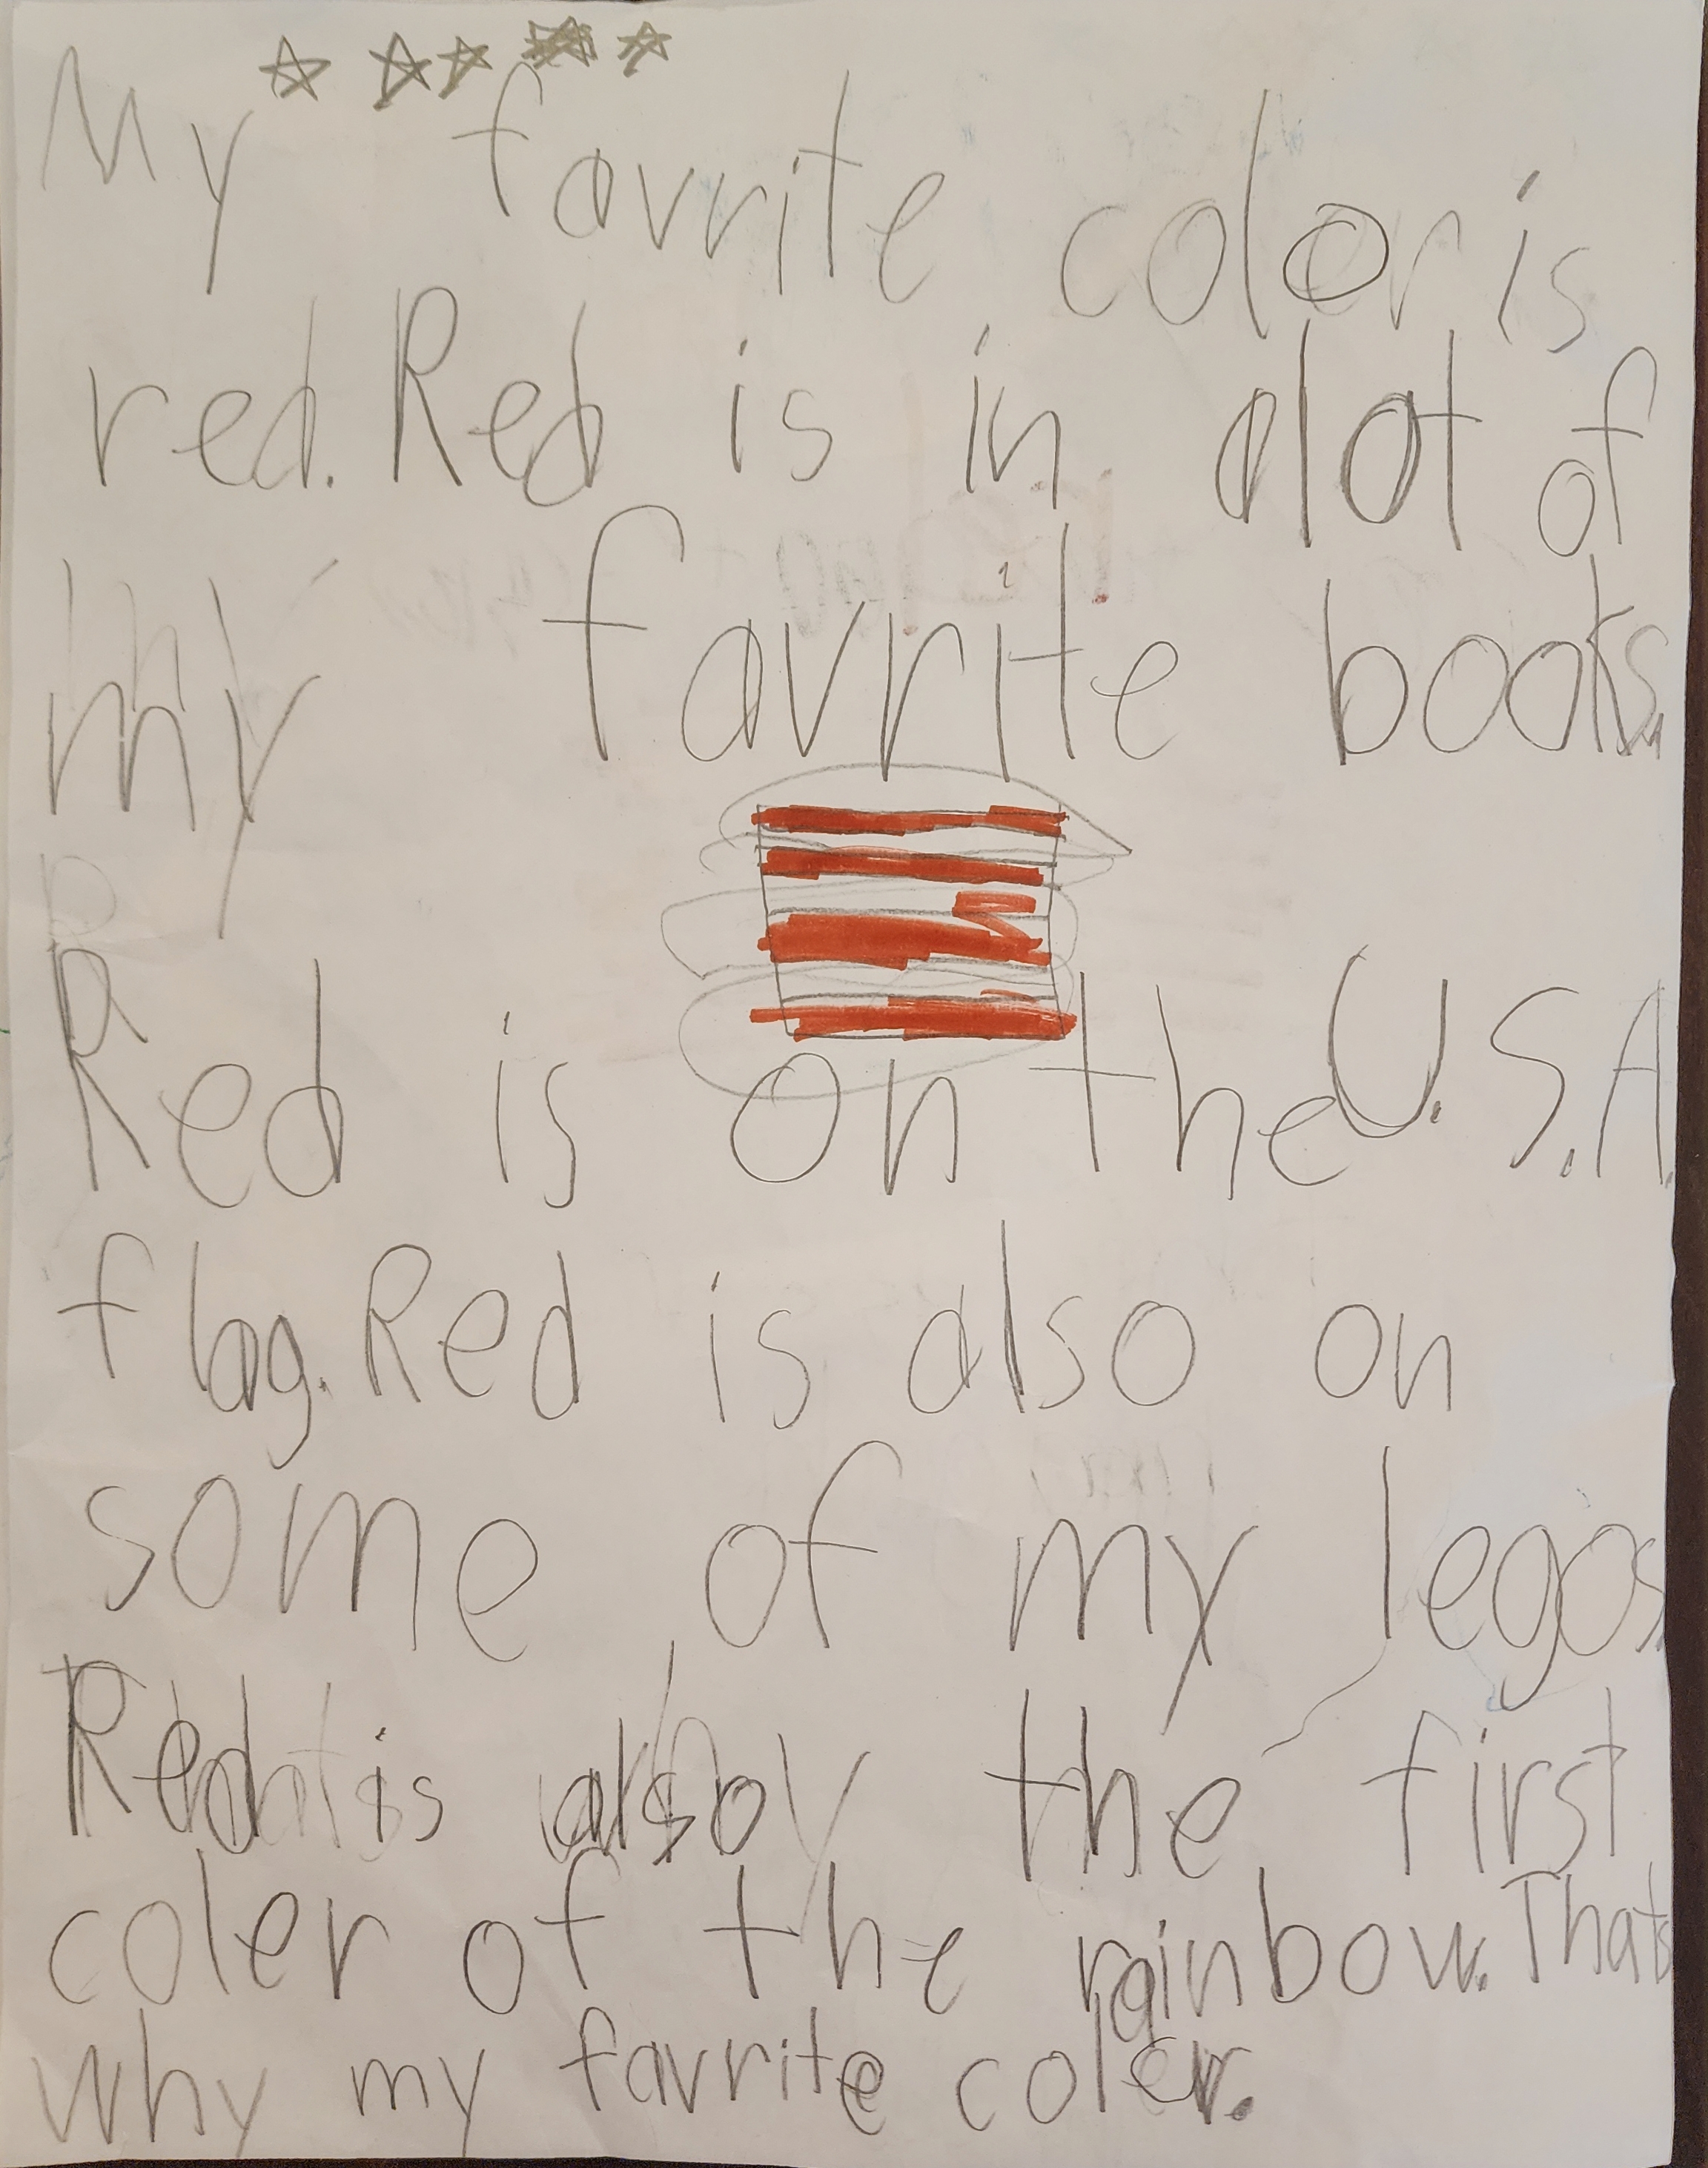 My favrite color is
red. Red is in alot of
my favrite books.
Red is on the U.S.A.
flag. Red is also on
some of my legos.
Red is also the first
coler of the rainbow. Thats
why my favrite coler.